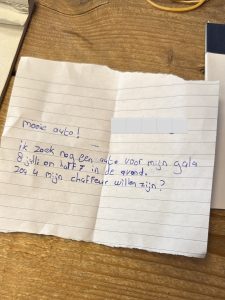 mooie auto!
ik zoek nog een auto voor mijn gala
8 juli om half 7 in de avond.
zou u mijn chauffeur willen zijn?